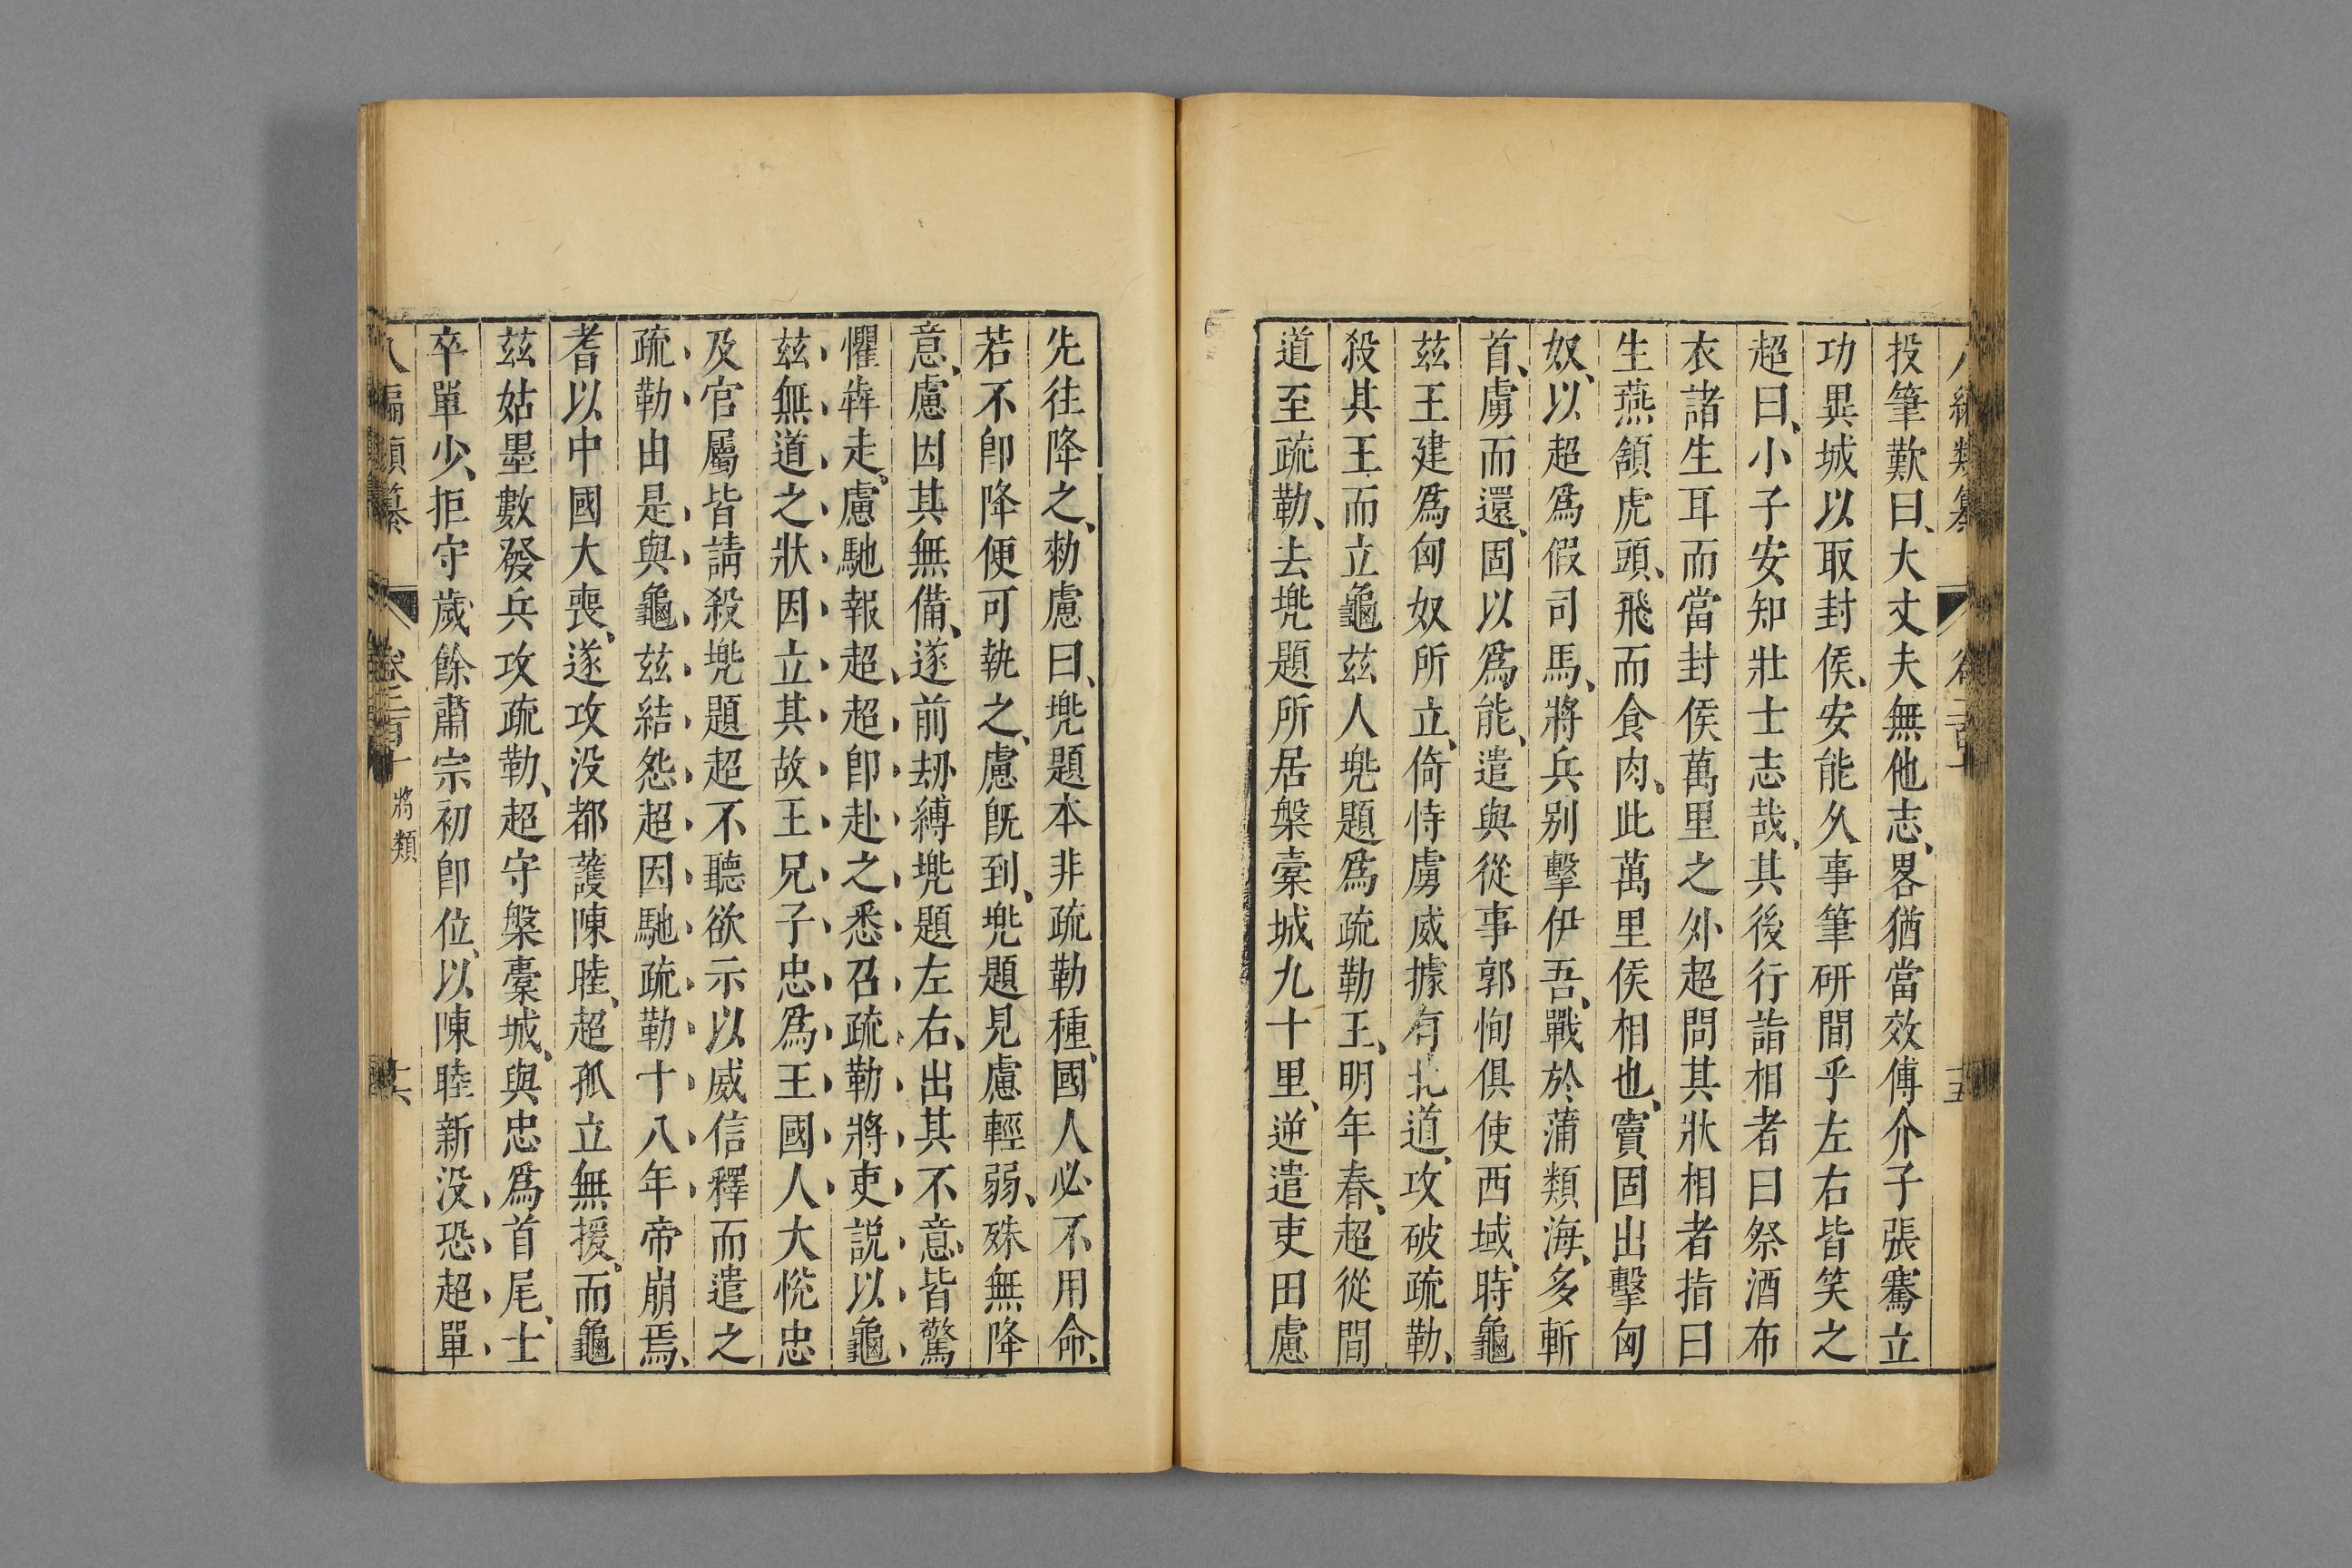 投筆歎曰、大丈夫無他志、畧猶當效傅介子張騫立
功異城以取封侯、安能久事筆硏間乎左右皆笑之
超曰、小子安知壯士志哉、其後行詣相者曰祭酒布
衣諸生耳而當封侯萬里之外超問其狀相者指曰
生燕頷虎頭、飛而食肉、此萬里侯相也、竇固出擊匈
奴、以超爲假司馬、將兵别擊伊吾、戰於蒲類海、多斬
首、虜而還、固以爲能、遣與從事郭恂俱使西域、時龜
兹王建爲匈奴所立、倚恃虜威據有北道、攻破疏勒、
殺其王而立龜兹人兠題爲疏勒王、明年春、超從間
道至疏勒、去兠題所居槃橐城九十里、逆遣吏田慮
先往降之、勑慮曰、兠題本非疏勒種、國人必不用命、
若不卽降便可執之、慮旣到、兠題見慮輕弱、殊無降
意、慮因其無備、遂前刼縛兠題左右、出其不意、皆驚
懼犇走。慮馳報超、超卽赴之悉召疏勒將吏説以龜
兹無道之狀因立其故王兄子忠爲王國人大悅忠
及官屬皆請殺兠題超不聽欲示以威信釋而遣之
疏勒由是與龜兹結怨超因馳疏勒十八年帝崩焉、
耆以中國大喪、遂攻没都護陳睦、超孤立無援。而龜
兹姑墨數發兵攻疏勒、超守槃橐城、與忠爲首尾、士
卒單少、拒守歲餘肅宗初卽位、以陳睦新没恐超單
八編類纂 卷二百十 將類 十六